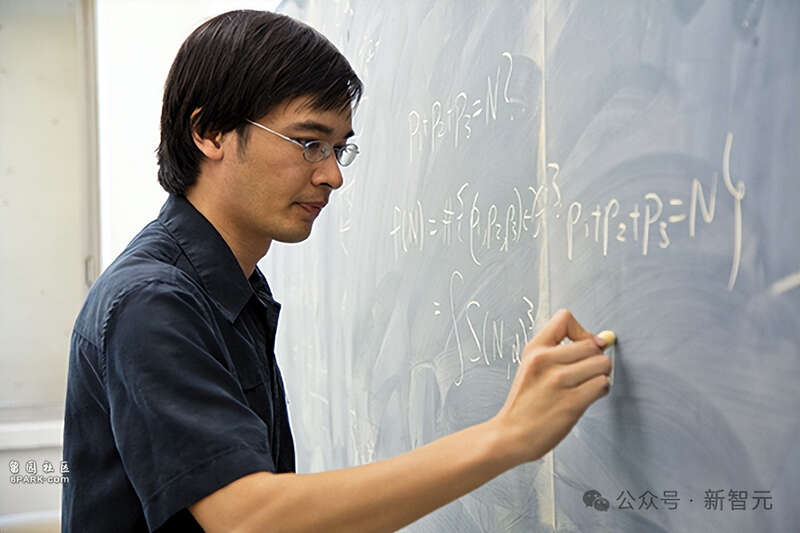 P₁+P₂+P₃=N?
f(N)=#{(P₁,P₂,P₃)∈ }³: P₁+P₂+P₃=N}
=∫S(N,α)³
留园社区
6PARK.COM
公众号 · 新智元